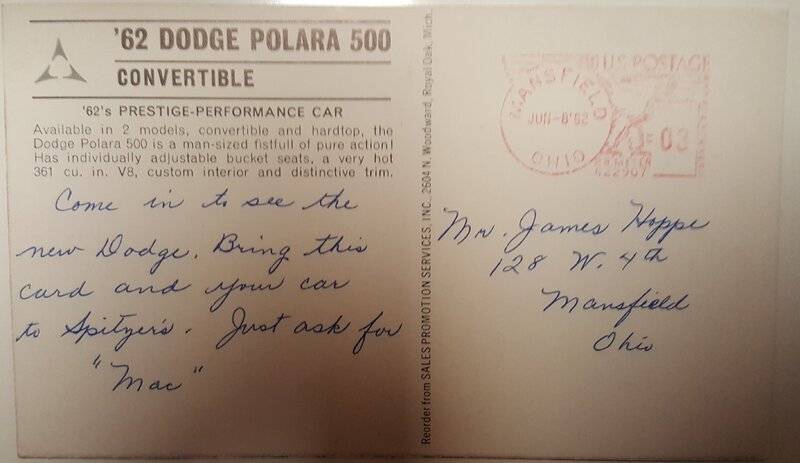 '62 DODGE POLARA 500
CONVERTIBLE
'62's PRESTIGE-PERFORMANCE CAR
Available in 2 models, convertible and hardtop, the
Dodge Polara 500 is a man-sized fistfull of pure action!
Has individually adjustable bucket seats, a very hot
361 cu. in. V8, custom interior and distinctive trim.
Come in to see the
new Dodge. Bring this
card and your car
to Spitzer's. Just ask for
"Mac"
Reorder from SALES PROMOTION SERVICES, INC., 2604 N. Woodward, Royal Oak, Mich.
MANSFIELD
JUN-8'62
OHIO
U.S. POSTAGE
03
622907
Mr. James Hoppe
128 W. 4th
Mansfield
Ohio